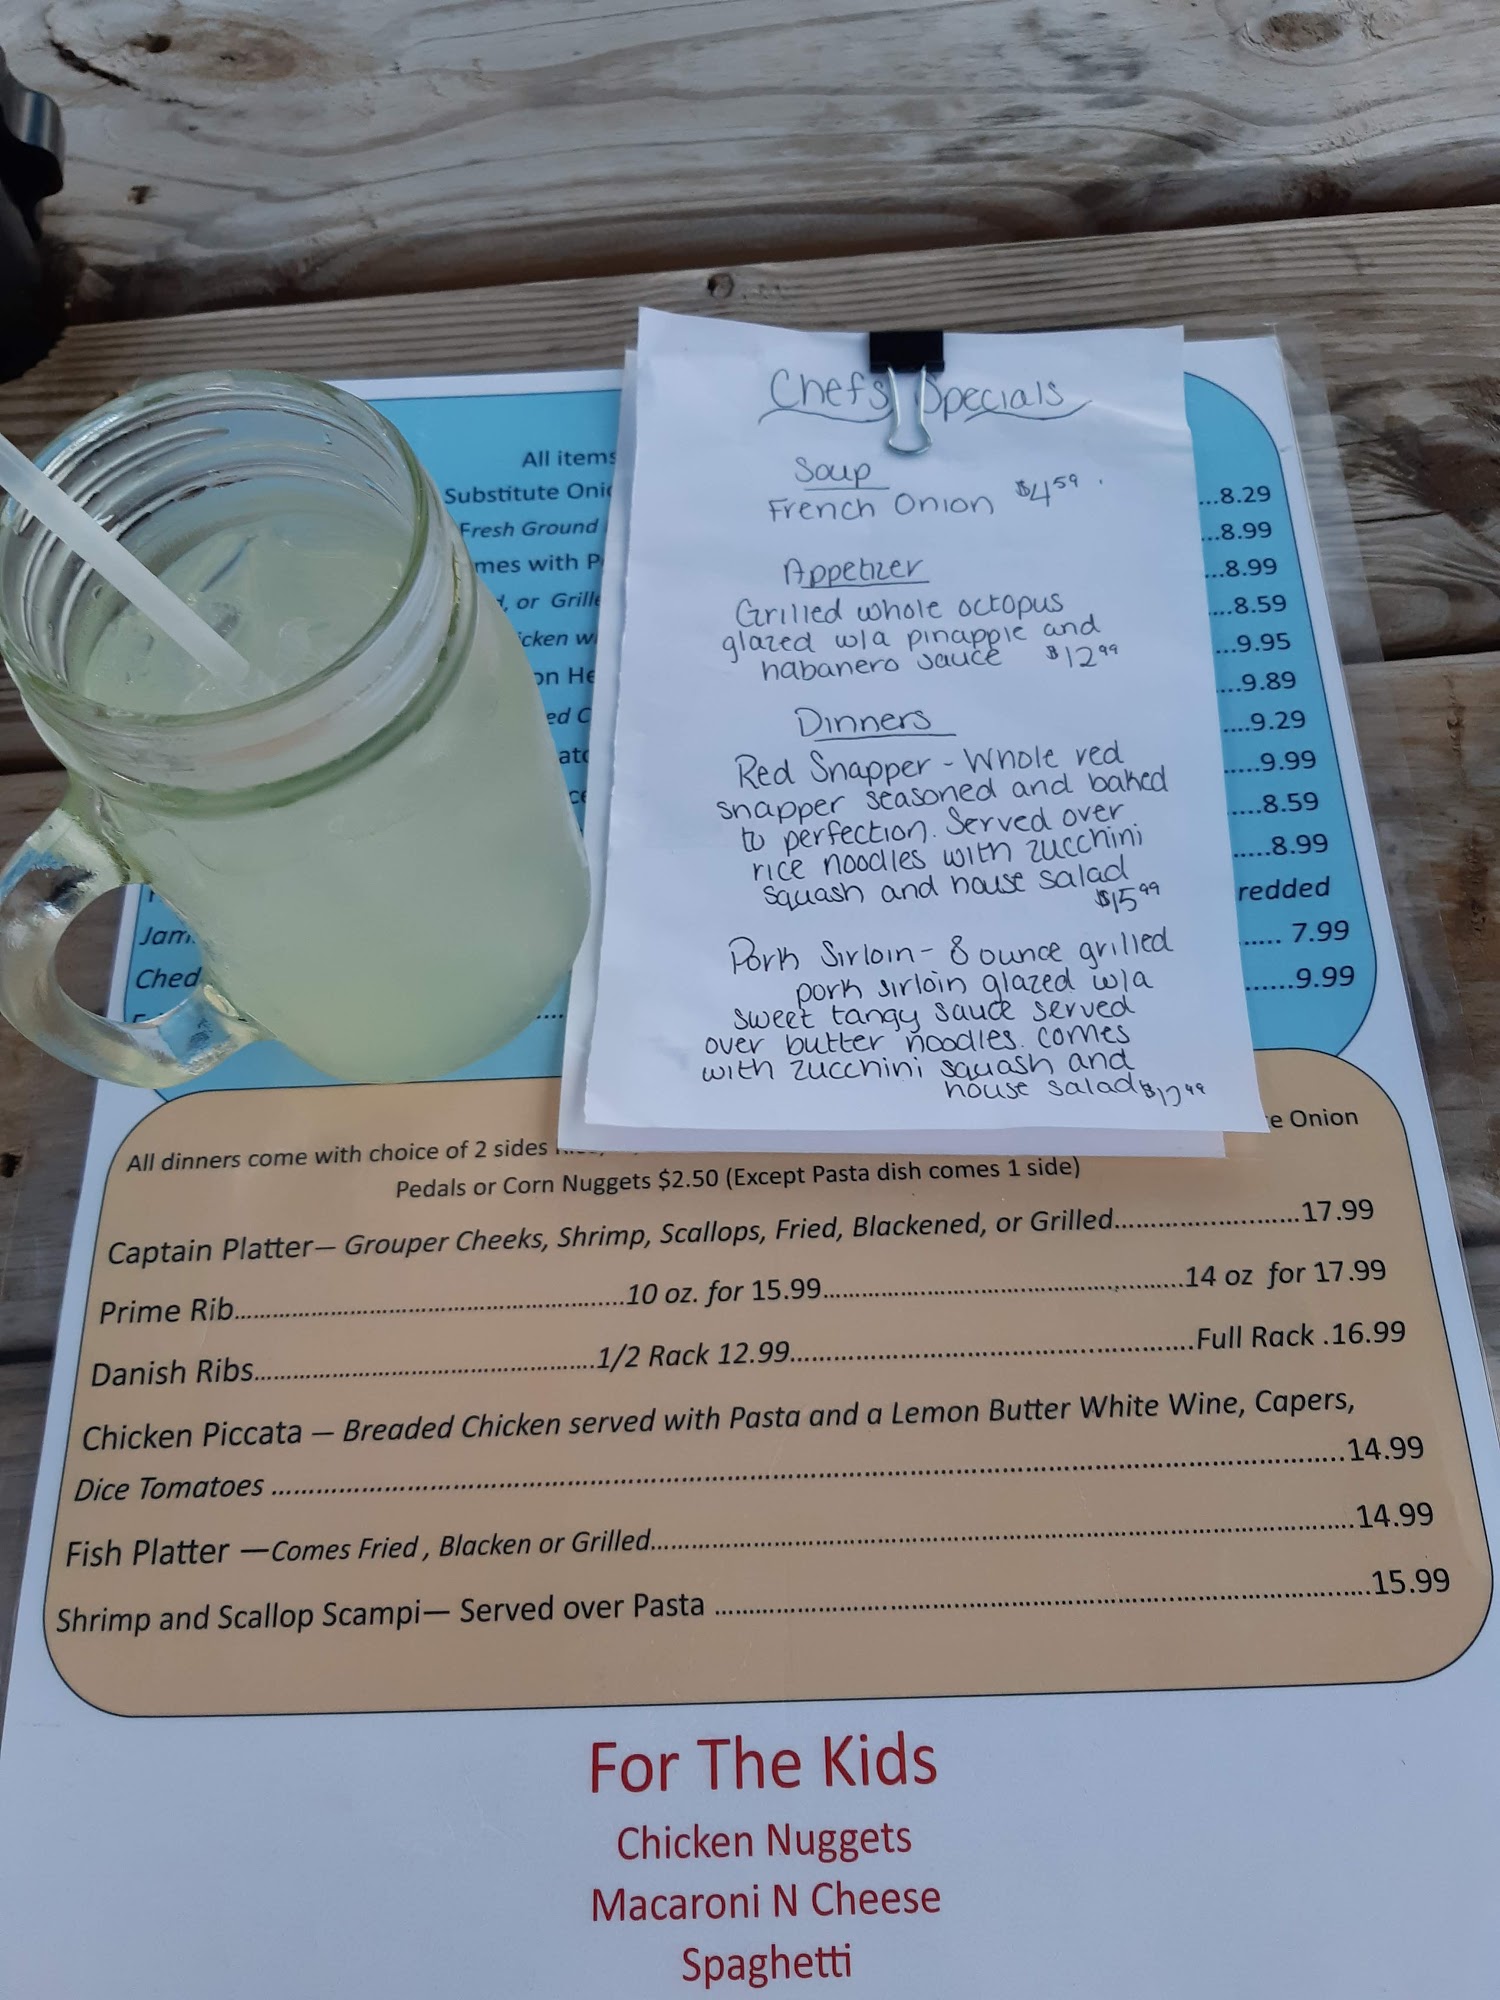 Chefs Specials
Soup
French Onion $4.59
Appetizer
Grilled whole octopus
glazed w/a pinapple and
habanero sauce $12.99
Dinners
Red Snapper - Whole red
snapper seasoned and baked
to perfection. Served over
rice noodles with zucchini
squash and house salad
$15.99
Pork Sirloin - 8 ounce grilled
pork sirloin glazed w/a
sweet tangy sauce served
over butter noodles. comes
with zucchini squash and
house salad
All items
Substitute ...8.29
Fresh Ground ...8.99
with ...8.99
, or ....8.59
...9.95
....9.89
....9.29
.....9.99
.....8.59
.....8.99
..... 7.99
......9.99
All dinners come with choice of 2 sides Onion
Pedals or Corn Nuggets $2.50 (Except Pasta dish comes 1 side)
Captain Platter— Grouper Cheeks, Shrimp, Scallops, Fried, Blackened, or Grilled..........................17.99
Prime Rib.....................................................10 oz. for 15.99.................................................14 oz for 17.99
Danish Ribs..............................................1/2 Rack 12.99......................................................Full Rack .16.99
Chicken Piccata — Breaded Chicken served with Pasta and a Lemon Butter White Wine, Capers,
Dice Tomatoes ........................................................................................................................................14.99
Fish Platter —Comes Fried , Blacken or Grilled...............................................................................................14.99
Shrimp and Scallop Scampi— Served over Pasta ..........................................................................................15.99
For The Kids
Chicken Nuggets
Macaroni N Cheese
Spaghetti